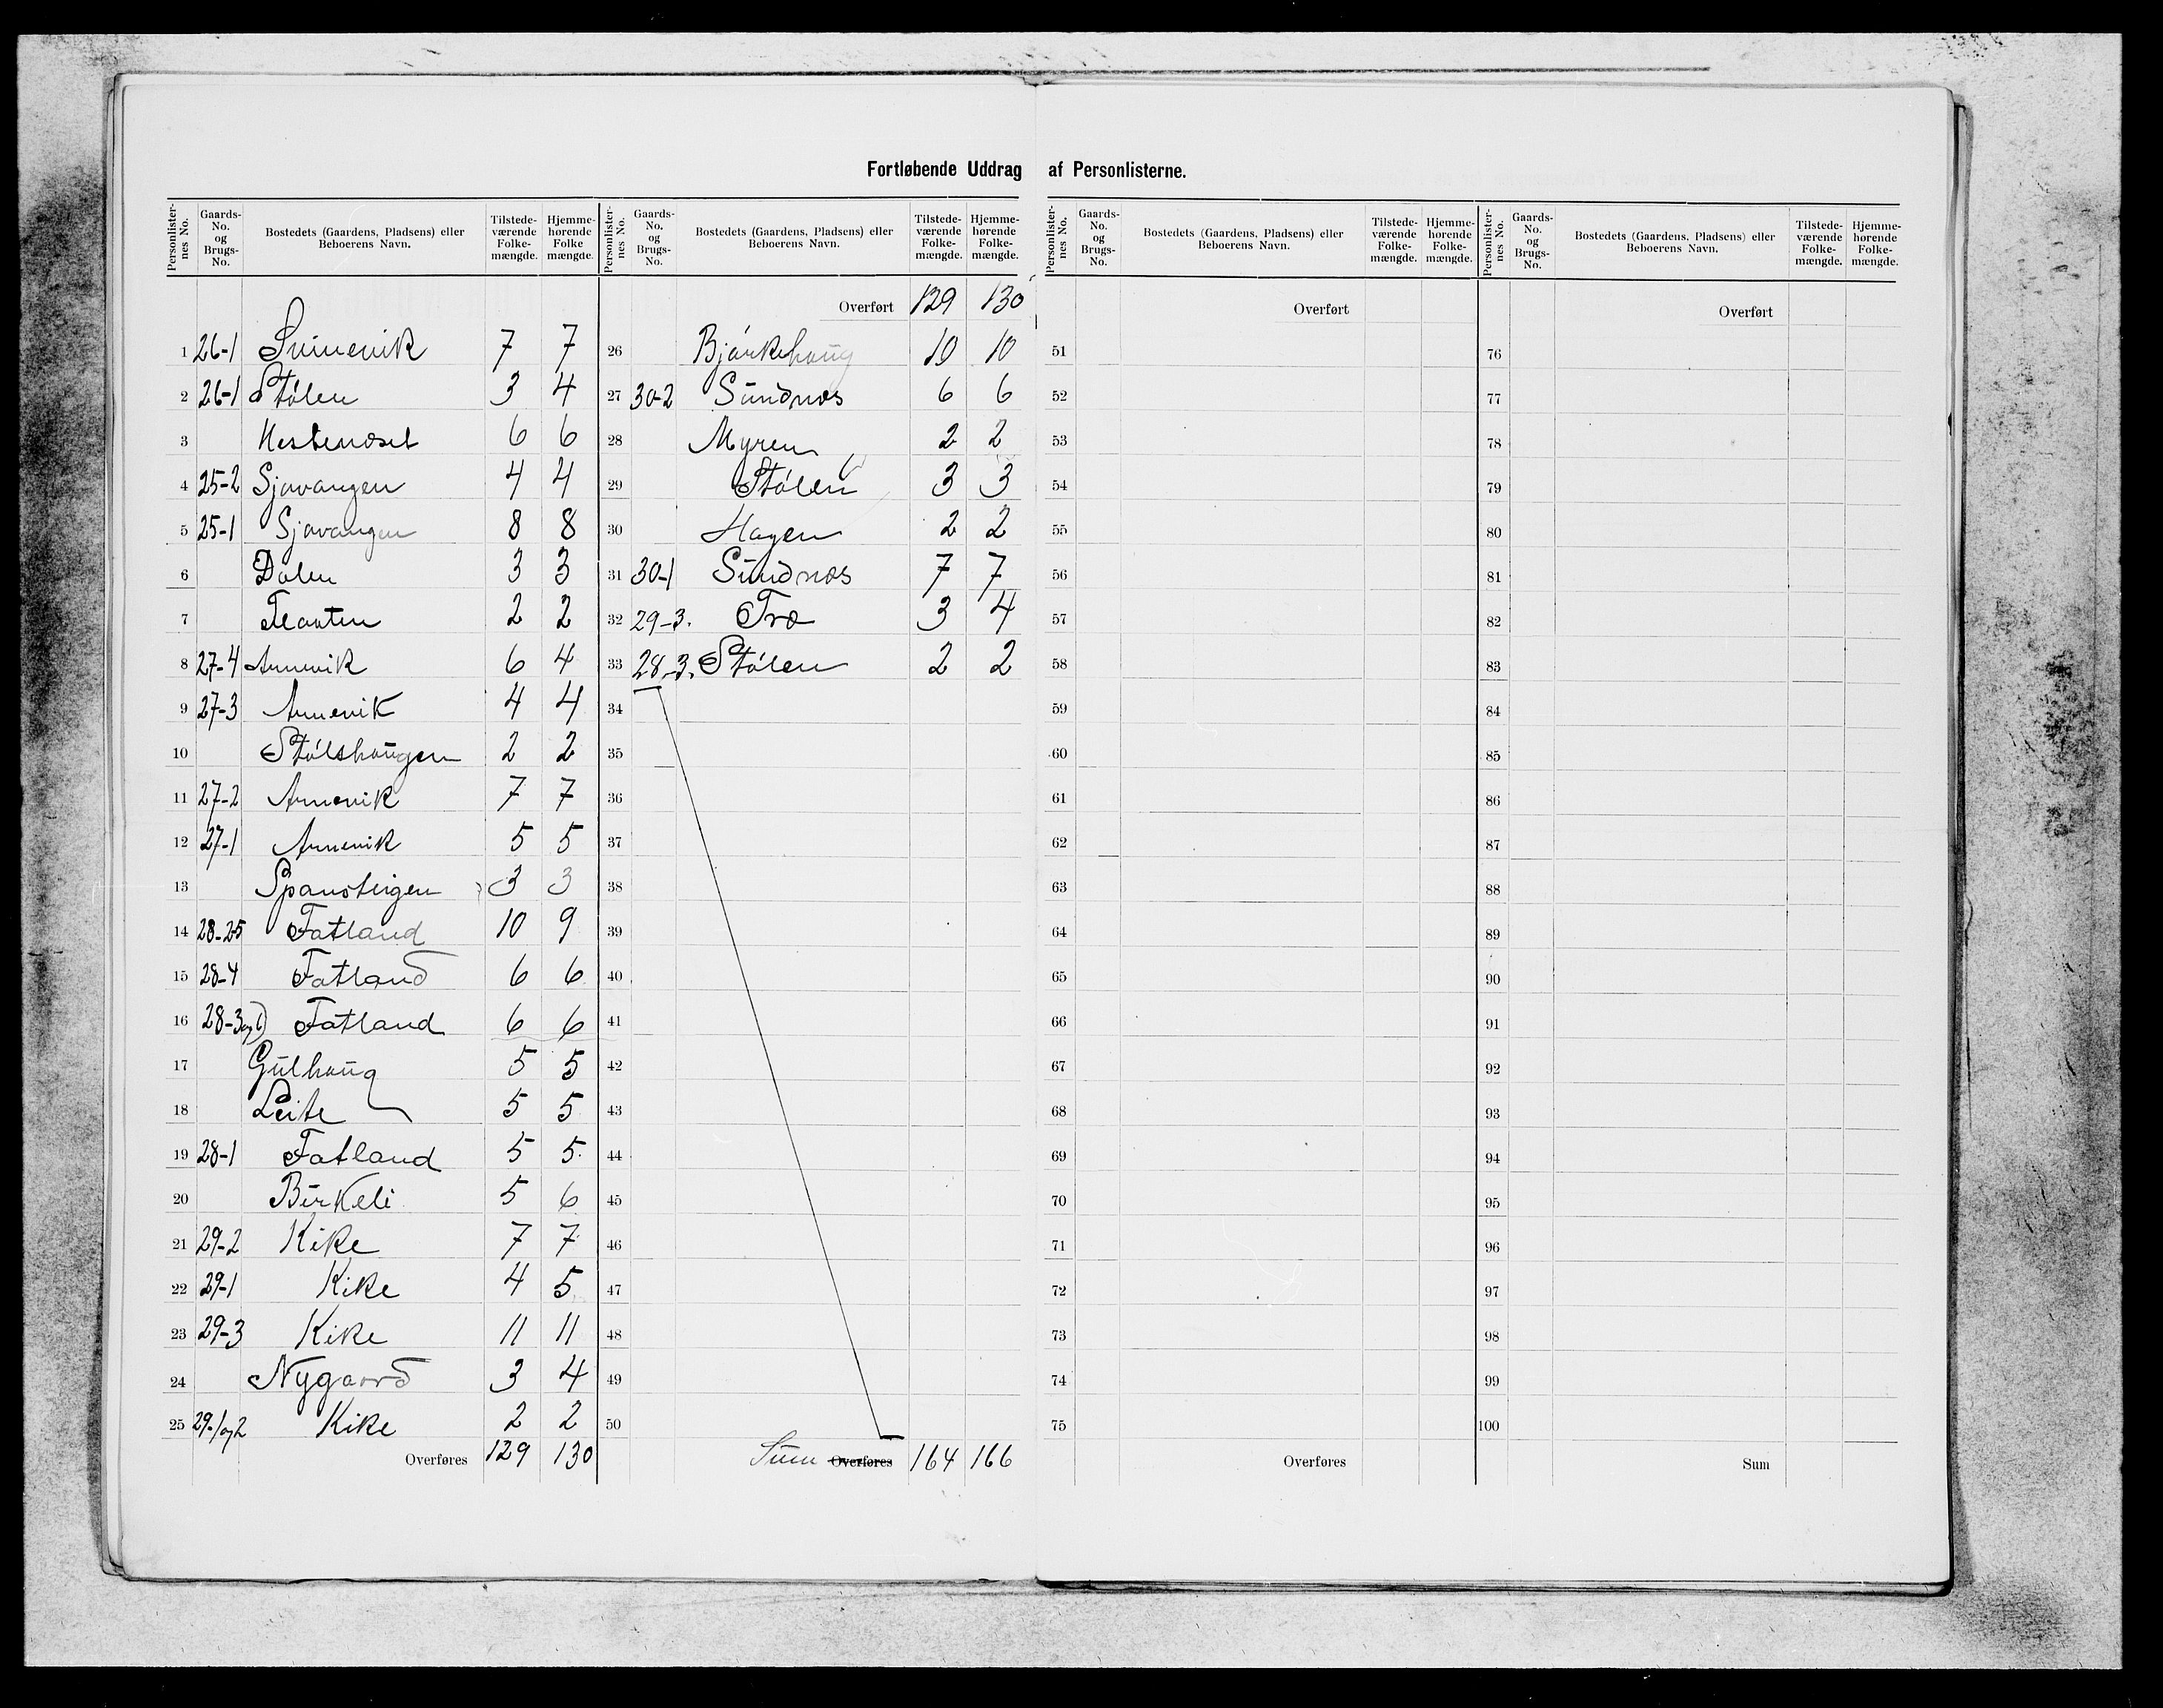 Fortløbende Uddrag af Personlisterne.
Personlister-nes No. Gaards-No. og Brugs-No. Bostedets (Gaardens, Pladsens) eller Beboerens Navn. Tilstede-værende Folke-mængde. Hjemme-hørende Folke mængde.
1 26-1 Svinevik 7 7
2 26-1 Stólen 3 4
3 Hesteneset 6 6
4 25-2 Sjovangen 4 4
5 25-1 Sjovangen 8 8
6 Dalen 3 3
7 Flaaten 2 2
8 27-4 Arnevik 6 4
9 27-3 Arnevik 4 4
10 Stólshaugen 2 2
11 27-2 Arnevik 7 7
12 27-1 Arnevik 5 5
13 Spansteigen 3 3
14 28-25 Fatland 10 9
15 28-4 Fatland 6 6
16 28-3 og 6) Fatland 6 6
17 Gulhaug 5 5
18 Leite 5 5
19 28-1 Fatland 5 5
20 Birkeli 5 6
21 29-2 Kike 7 7
22 29-1 Kike 4 5
23 29-3 Kike 11 11
24 Nygaard 3 4
25 29-1og2 Kike 2 2
Overføres 129 130
Personlister-nes No. Gaards-No. og Brugs-No. Bostedets (Gaardens, Pladsens) eller Beboerens Navn. Tilstede-værende Folke-mængde. Hjemme-hørende Folke-mængde.
Overført 129 130
26 Bjórkehaug 10 10
27 30-2 Sundnes 6 6
28 Myren 2 2
29 Stólen 3 3
30 Hagen 2 2
31 30-1 Sundnes 7 7
32 29-3. Træ 3 4
33 28-3. Stólen 2 2
34
35
36
37
38
39
40
41
42
43
44
45
46
47
48
49
50
Sum Overføres 164 166
Personlister-nes No. Gaards-No. og Brugs-No. Bostedets (Gaardens, Pladsens) eller Beboerens Navn. Tilstede-værende Folke-mængde. Hjemme-hørende Folke-mængde.
Overført
51
52
53
54
55
56
57
58
59
60
61
62
63
64
65
66
67
68
69
70
71
72
73
74
75
Overføres
Personlister-nes No. Gaards-No. og Brugs-No. Bostedets (Gaardens, Pladsens) eller Beboerens Navn. Tilstede-værende Folke-mængde. Hjemme-hørende Folke-mængde.
Overført
76
77
78
79
80
81
82
83
84
85
86
87
88
89
90
91
92
93
94
95
96
97
98
99
100
Sum